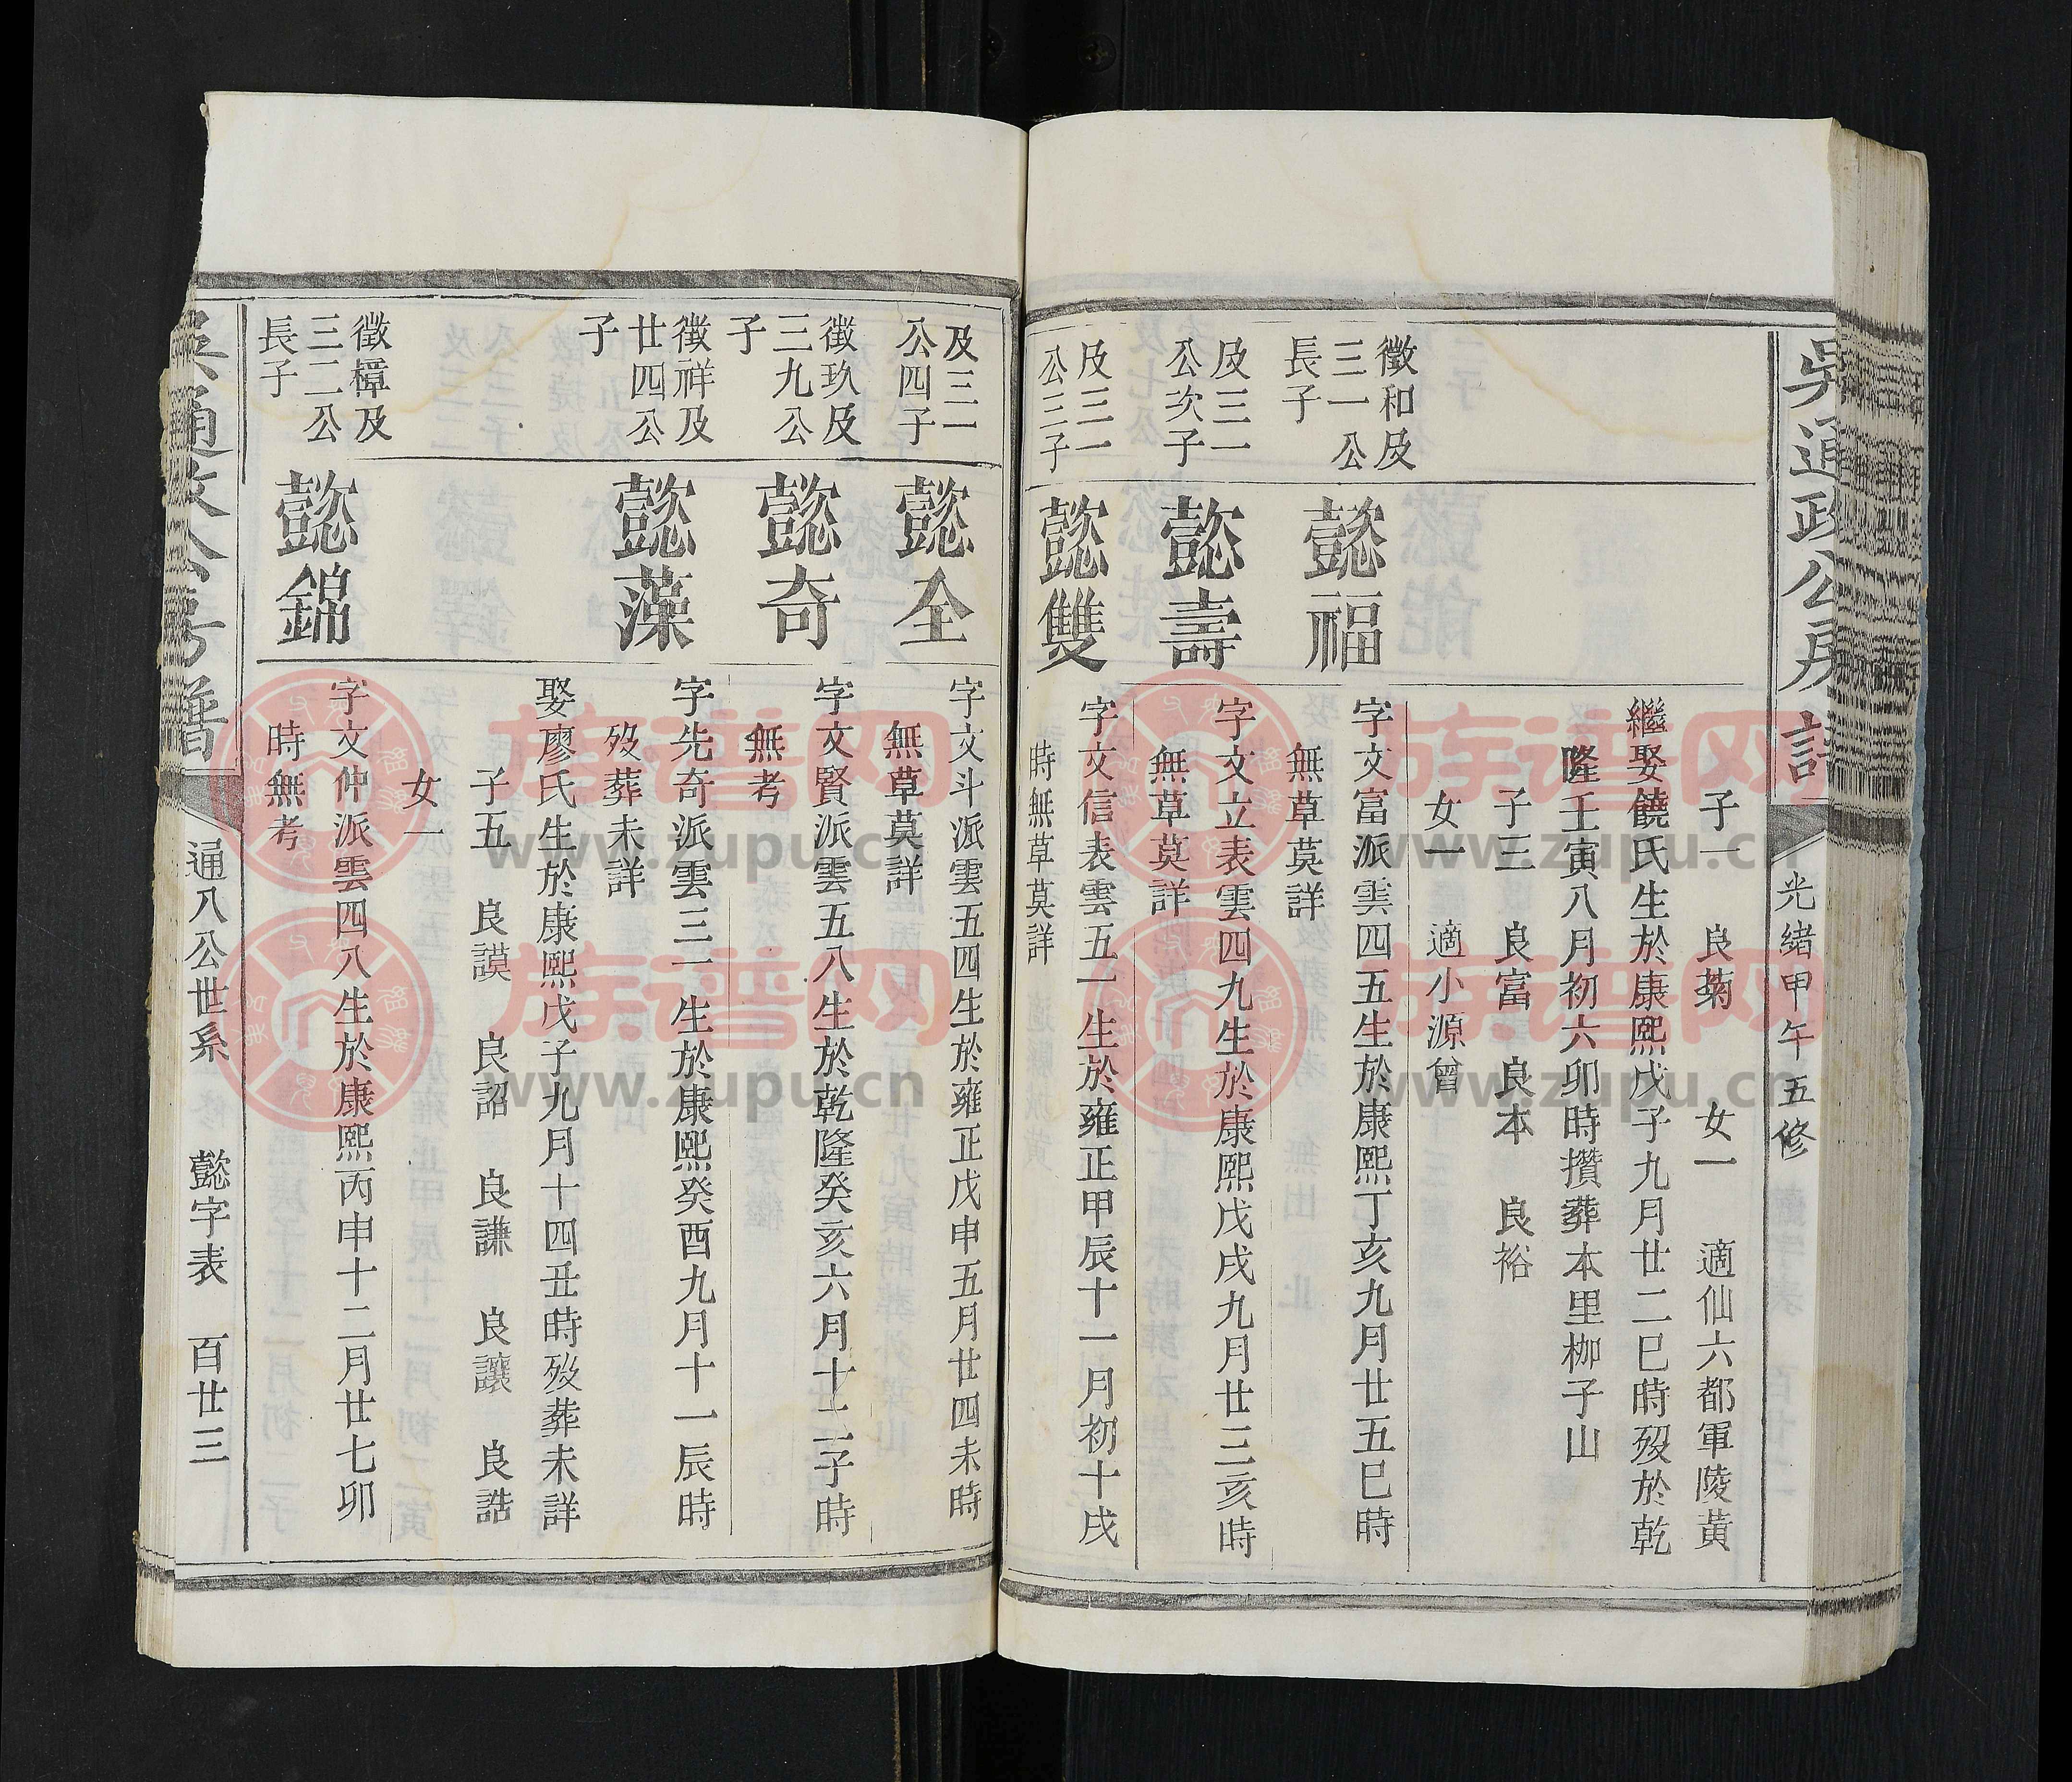 吳通政公房譜
光緒甲午五修
子一 良菊 女一 適仙六都軍陵黃
繼娶饒氏生於康熙戊子九月廿二巳時歿於乾
隆壬寅八月初六卯時攢葬本里柳子山
子三 良富 良本 良裕
女一 適小源曾
徵和及
三一公
長子
懿福
字文富派雲四五生於康熙丁亥九月廿五巳時
無草莫詳
及三一
公次子
懿壽
字文立表雲四九生於康熙戊戌九月廿三亥時
無草莫詳
及三一
公三子
懿雙
字文信表雲五一生於雍正甲辰十一月初十戌
時無草莫詳
及三一
公四子
懿全
字文斗派雲五四生於雍正戊申五月廿四未時
無草莫詳
徵玖及
三九公
子
懿奇
字文賢派雲五八生於乾隆癸亥六月十二子時
無考
徵祥及
廿四公
子
懿藻
字先奇派雲三一生於康熙癸酉九月十一辰時
歿葬未詳
娶廖氏生於康熙戊子九月十四丑時歿葬未詳
子五 良謨 良詔 良謙 良讓 良誥
女一
徵樟及
三二公
長子
懿錦
字文仲派雲四八生於康熙丙申十二月廿七卯
時無考
吳通政公房譜
通八公世系 懿字表 百廿三
族譜网
www.zupu.cn
族譜网
www.zupu.cn
族譜网
www.zupu.cn
族譜网
www.zupu.cn